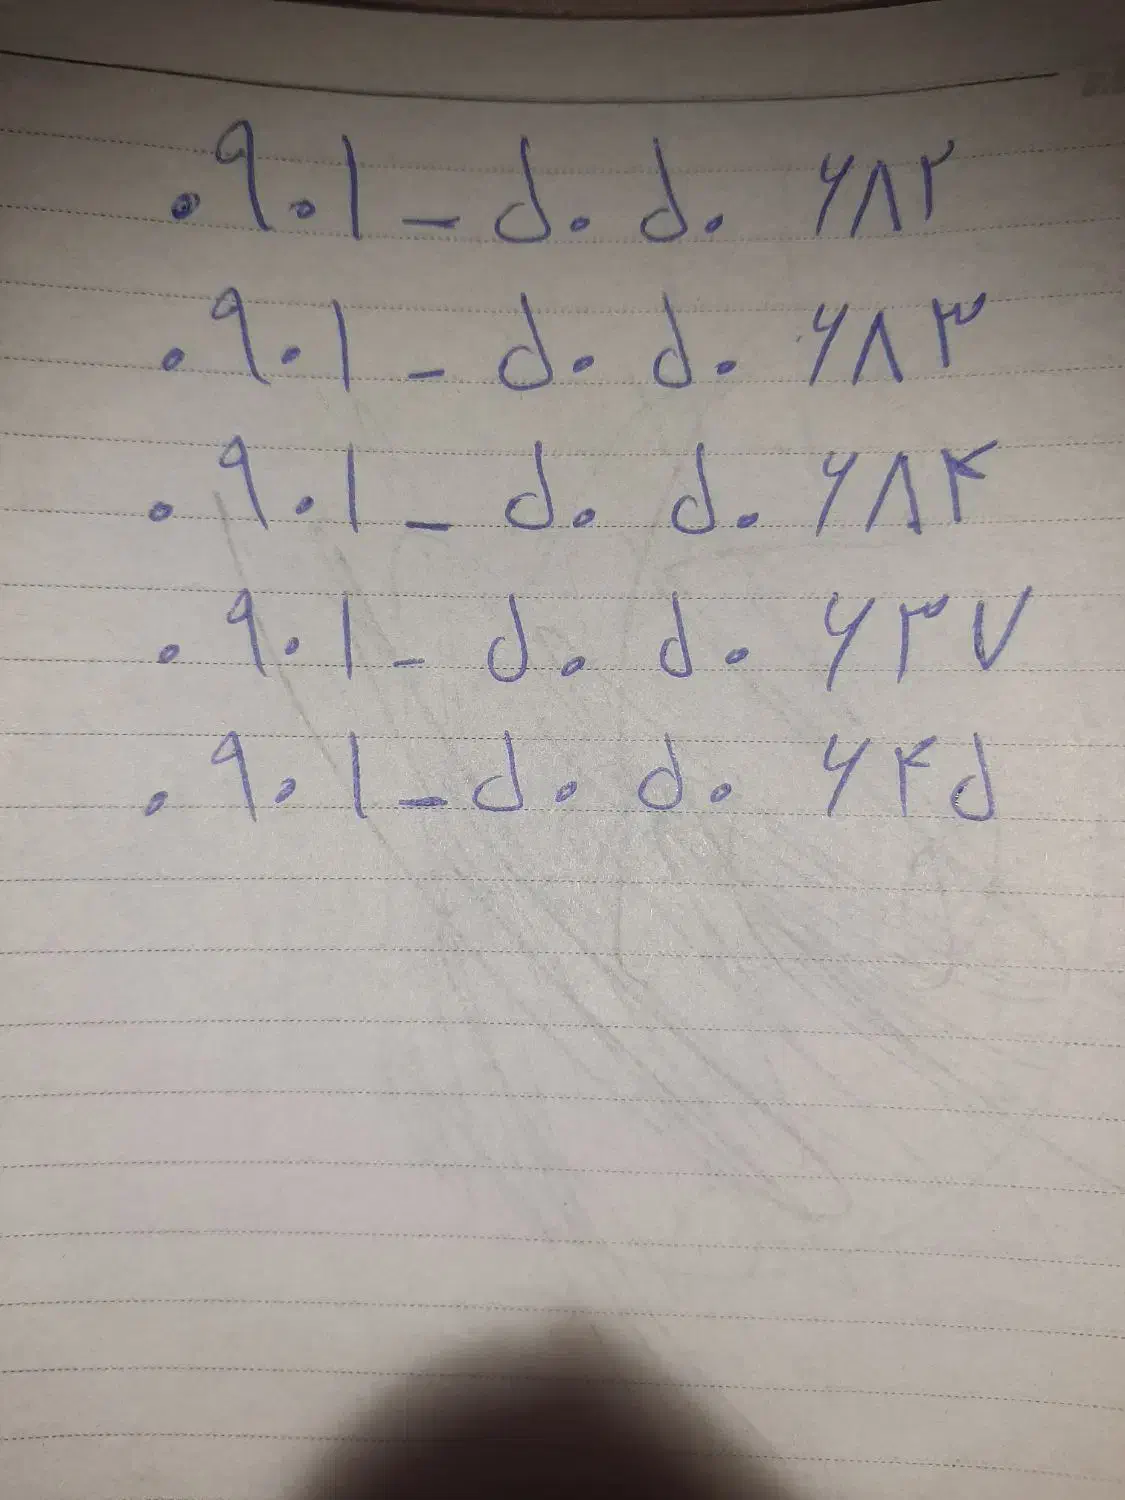 ۰۹۰۱ - ۵۰ ۵۰ ۶۸۲
۰۹۰۱ - ۵۰ ۵۰ ۶۸۳
۰۹۰۱ - ۵۰ ۵۰ ۶۸۴
۰۹۰۱ - ۵۰ ۵۰ ۶۳۷
۰۹۰۱ - ۵۰ ۵۰ ۶۴۵